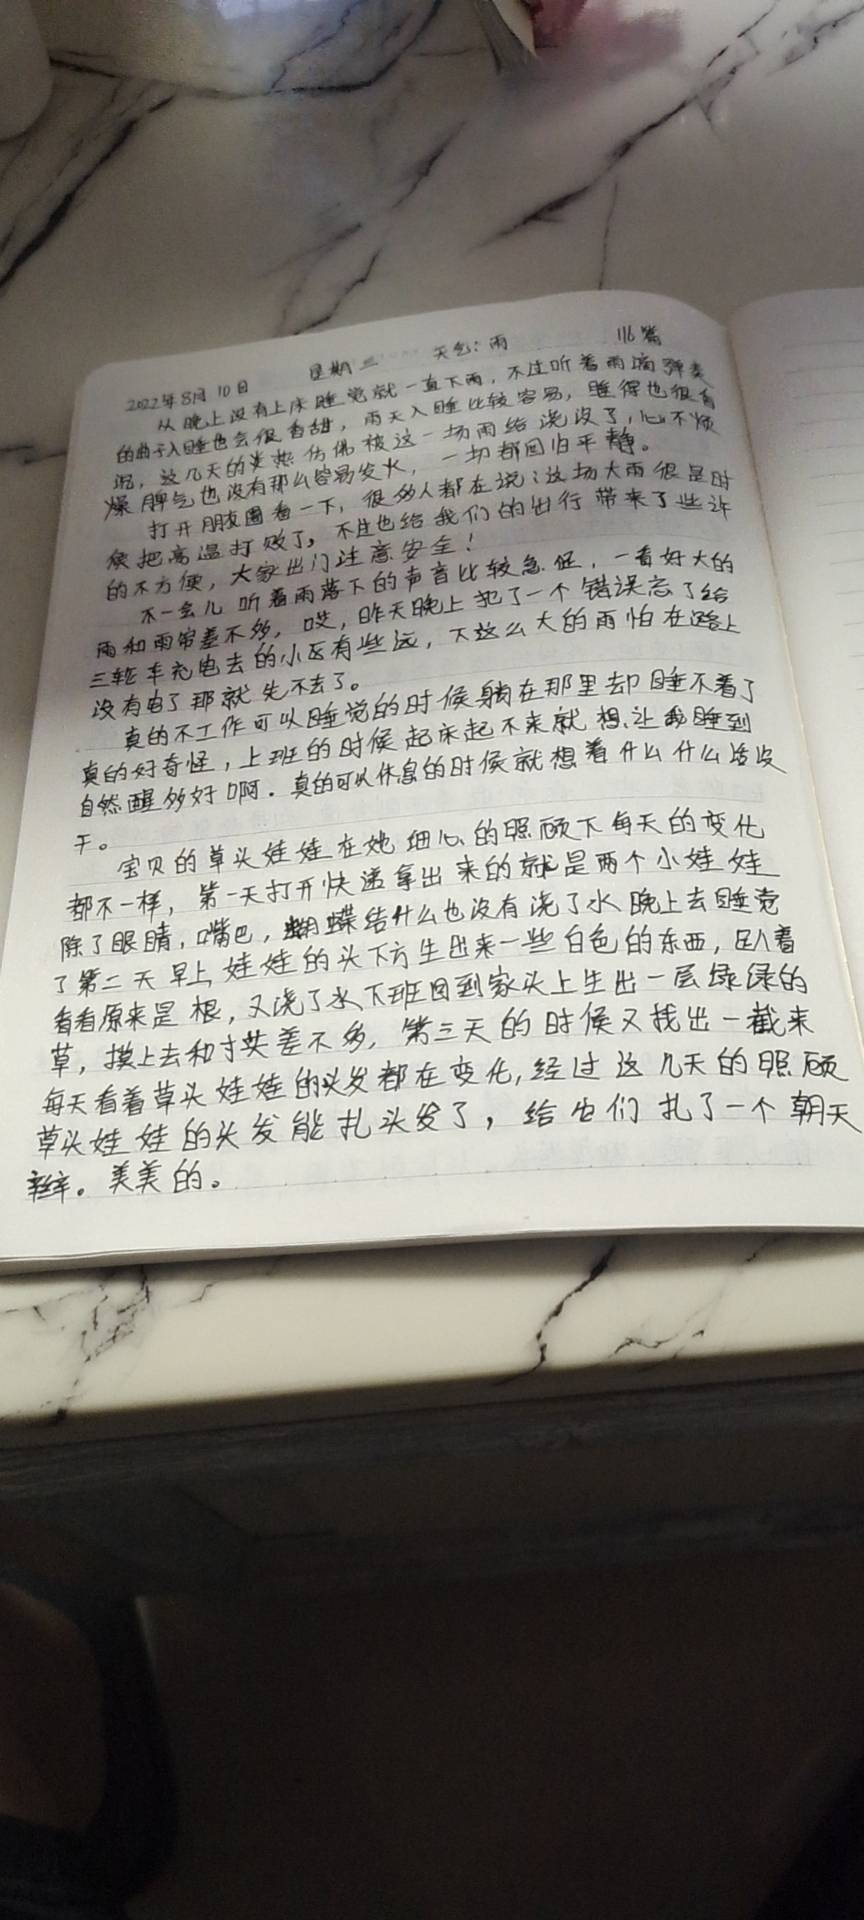 2022年8月10日 星期三 天气:雨 116篇
从晚上没有上床睡觉就一直下雨,不过听着雨滴弹奏
的曲子入睡也会很香甜,雨天入睡比较容易,睡得也很香
沉,这几天的炎热仿佛被这一场雨给浇没了,心不烦
燥脾气也没有那么容易发火,一切都回归平静。
打开朋友圈看一下,很多人都在说:这场大雨很是时
候把高温打败了,不过也给我们的出行带来了些许
的不方便,大家出门注意安全!
不一会儿听着雨落下的声音比较急促,一看好大的
雨和雨帘差不多,哎,昨天晚上犯了一个错误忘了给
三轮车充电去的小区有些远,下这么大的雨怕在路上
没有电了那就先不去了。
真的不工作可以睡觉的时候躺在那里却睡不着了
真的好奇怪,上班的时候起床起不来就想让我睡到
自然醒多好啊.真的可以休息的时候就想着什么什么活没
干。
宝贝的草头娃娃在她细心的照顾下每天的变化
都不一样,第一天打开快递拿出来的就是两个小娃娃
除了眼睛,嘴巴,蝴蝶结什么也没有浇了水晚上去睡觉
了第二天早上娃娃的头下方生出来一些白色的东西,趴着
看看原来是根,又浇了水下班回到家头上生出一层绿绿的
草,摸上去和寸头差不多,第三天的时候又找出一截来
每天看着草头娃娃的头发都在变化,经过这几天的照顾
草头娃娃的头发能扎头发了,给它们扎了一个朝天
辫。美美的。